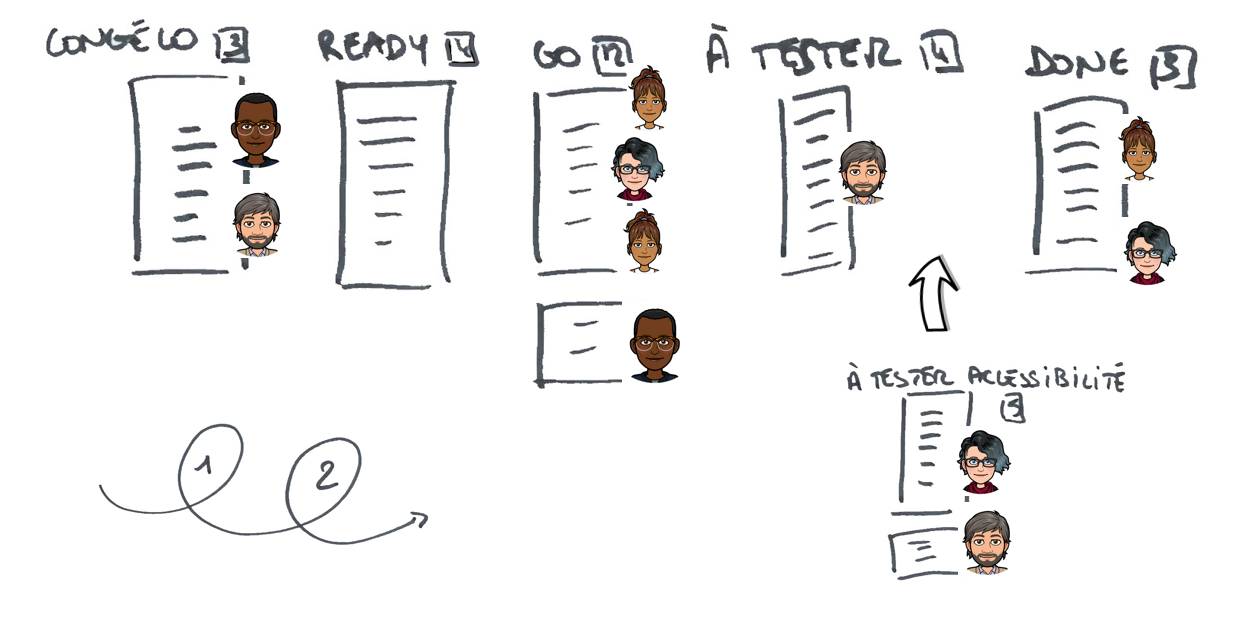 CONGÉLO 3
READY 4
GO 12
À TESTER 4
DONE 5
À TESTER ACCESSIBILITÉ
5
1
2